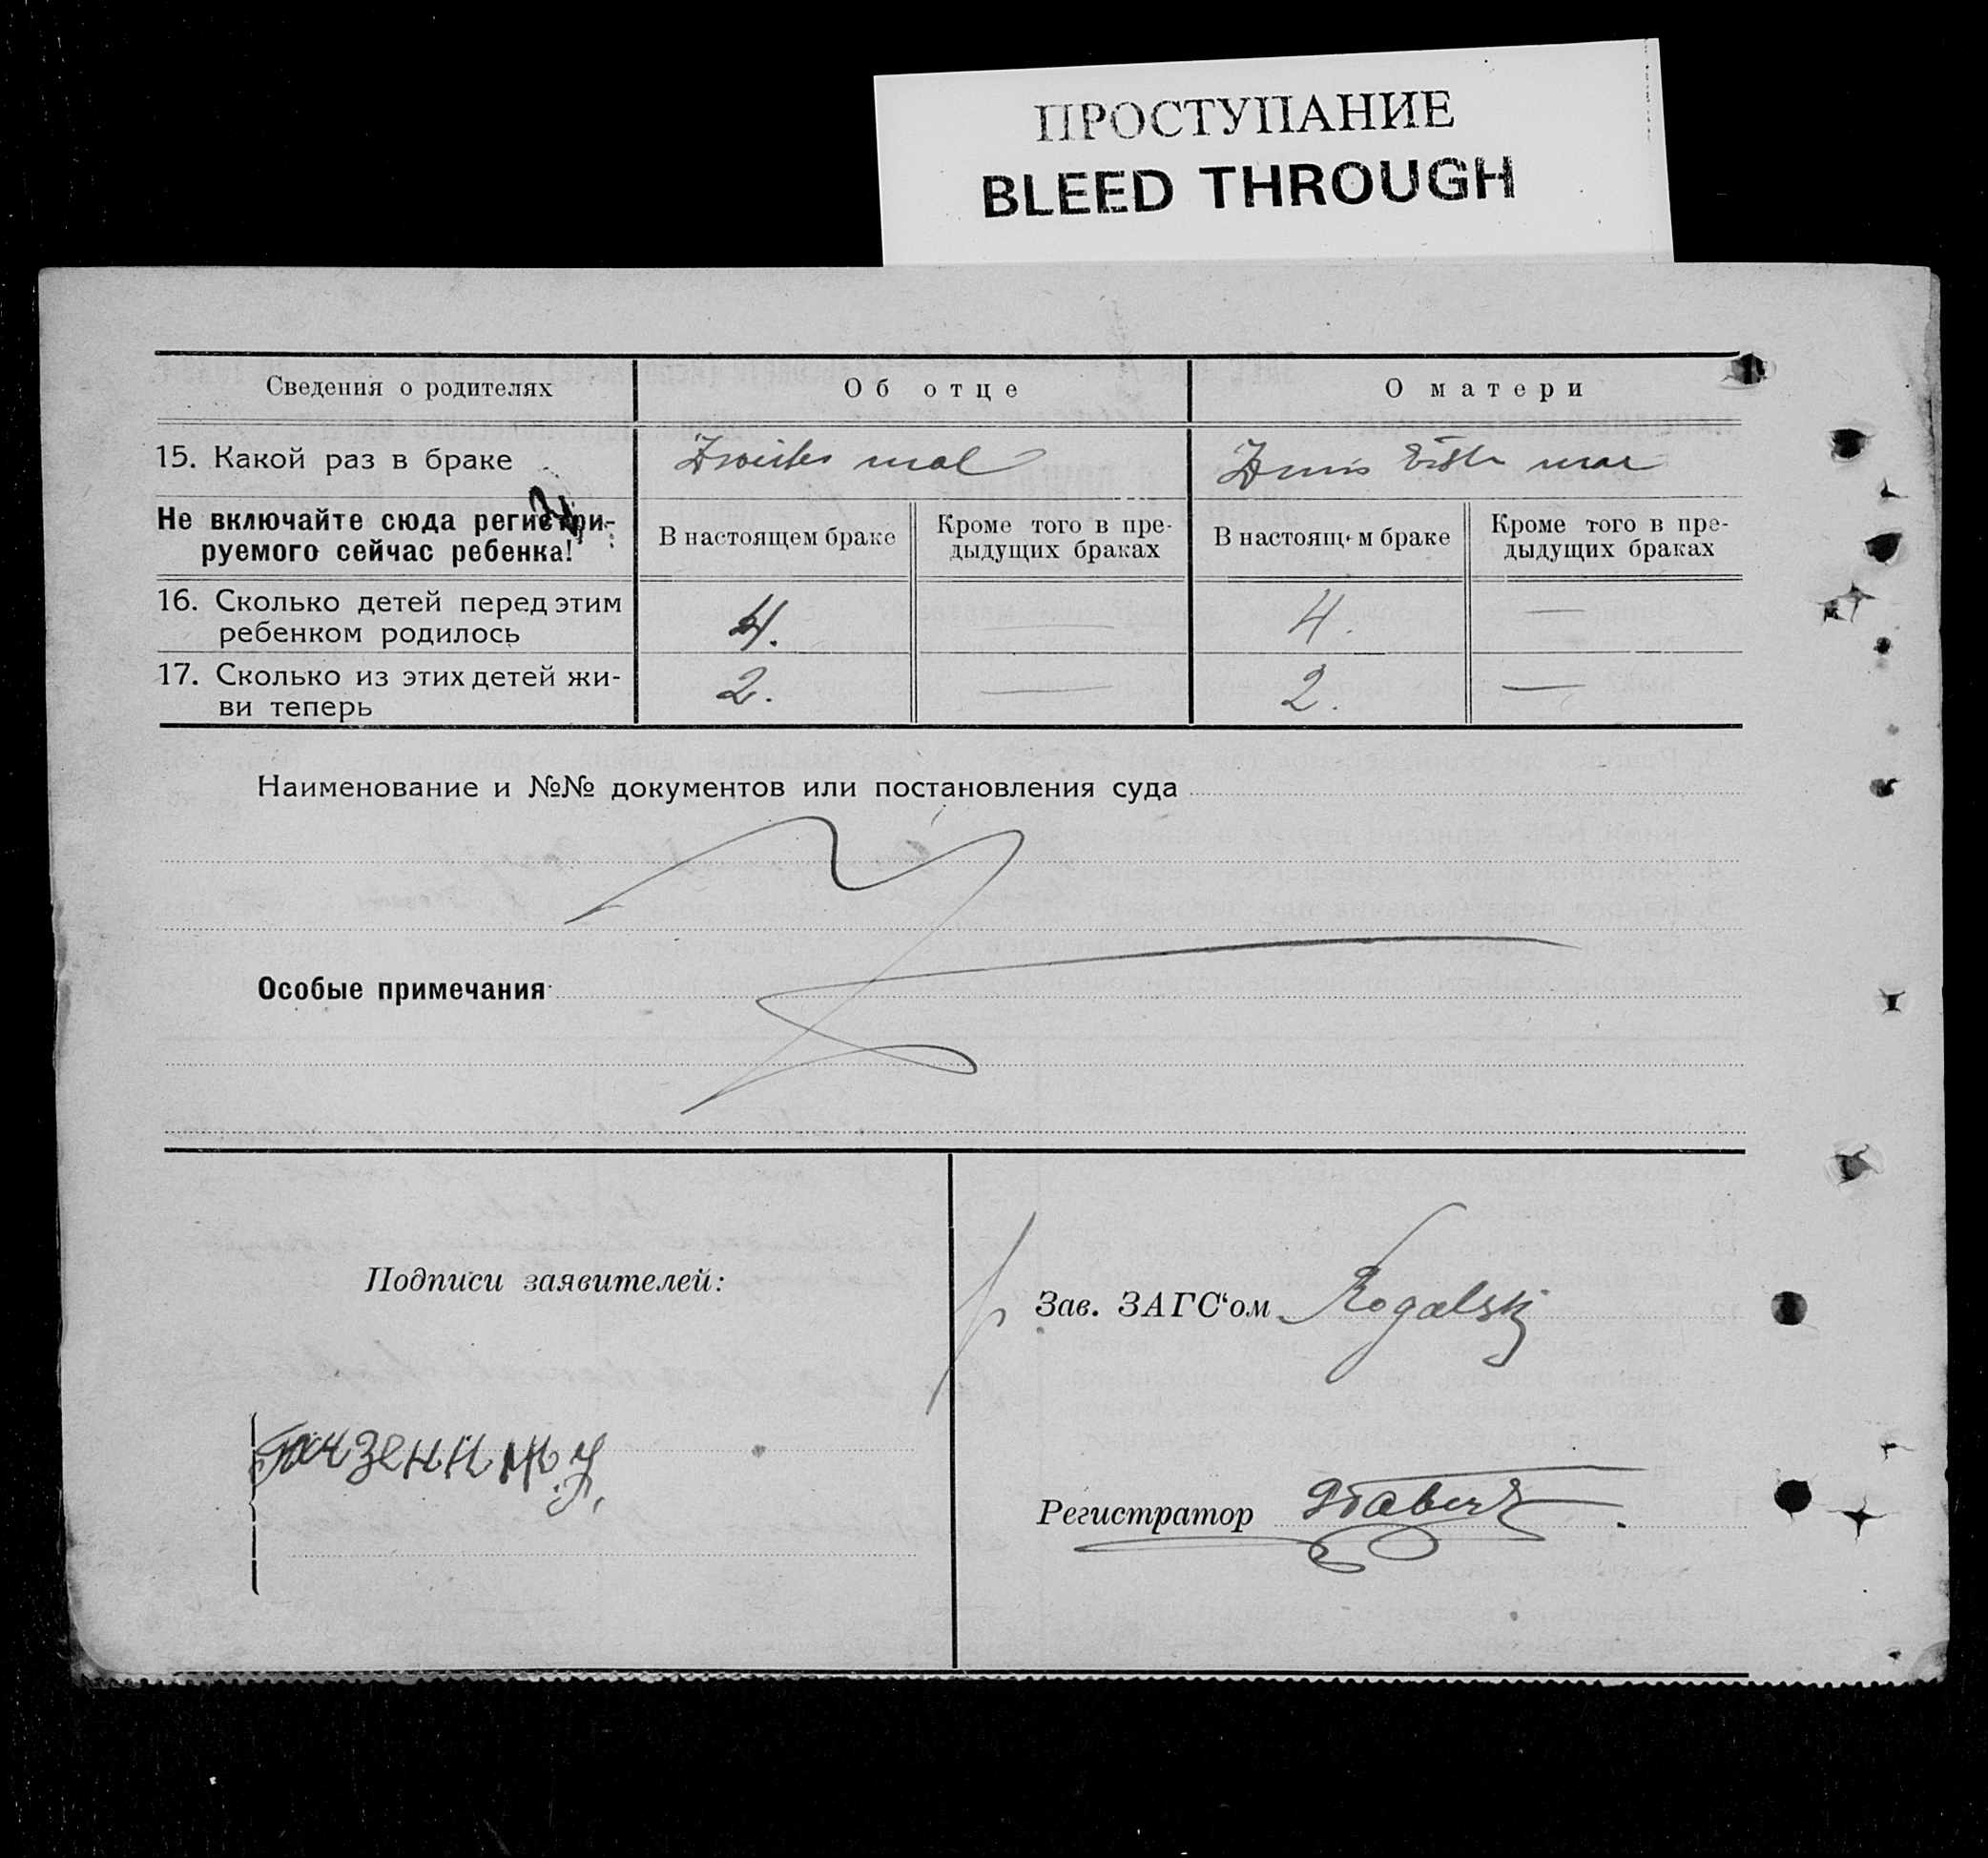 ПРОСТУПАНИЕ
BLEED THROUGH
Сведения о родителях
Об отце
О матери
15. Какой раз в браке
Zweites mal
Zum Erste mal
Не включайте сюда регистри-
руемого сейчас ребенка!
В настоящем браке
Кроме того в пре-
дыдущих браках
В настоящем браке
Кроме того в пре-
дыдущих браках
16. Сколько детей перед этим
ребенком родилось
4.
—
4.
—
17. Сколько из этих детей жи-
ви теперь
2.
—
2.
—
Наименование и №№ документов или постановления суда
Особые примечания
Подписи заявителей:
Зав. ЗАГС‘ом Rogalski
Регистратор